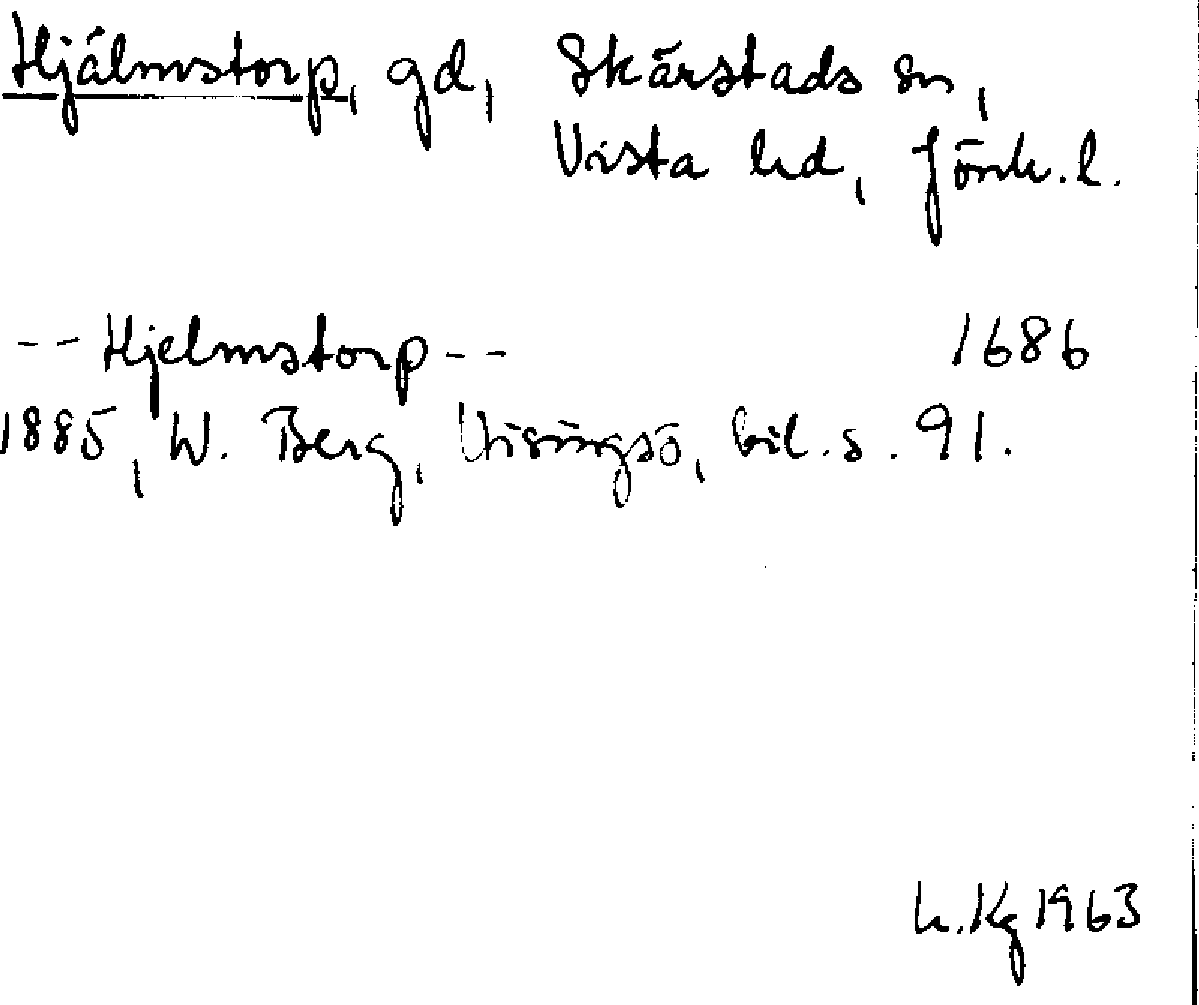 Hjälmstorp, gd, Skärstads sn,
Vista hd, Jönk. l.
-- Hjelmstorp -- 1686
1885, W. Berg, Visingsö, bil. s. 91.
h. Kg 1963